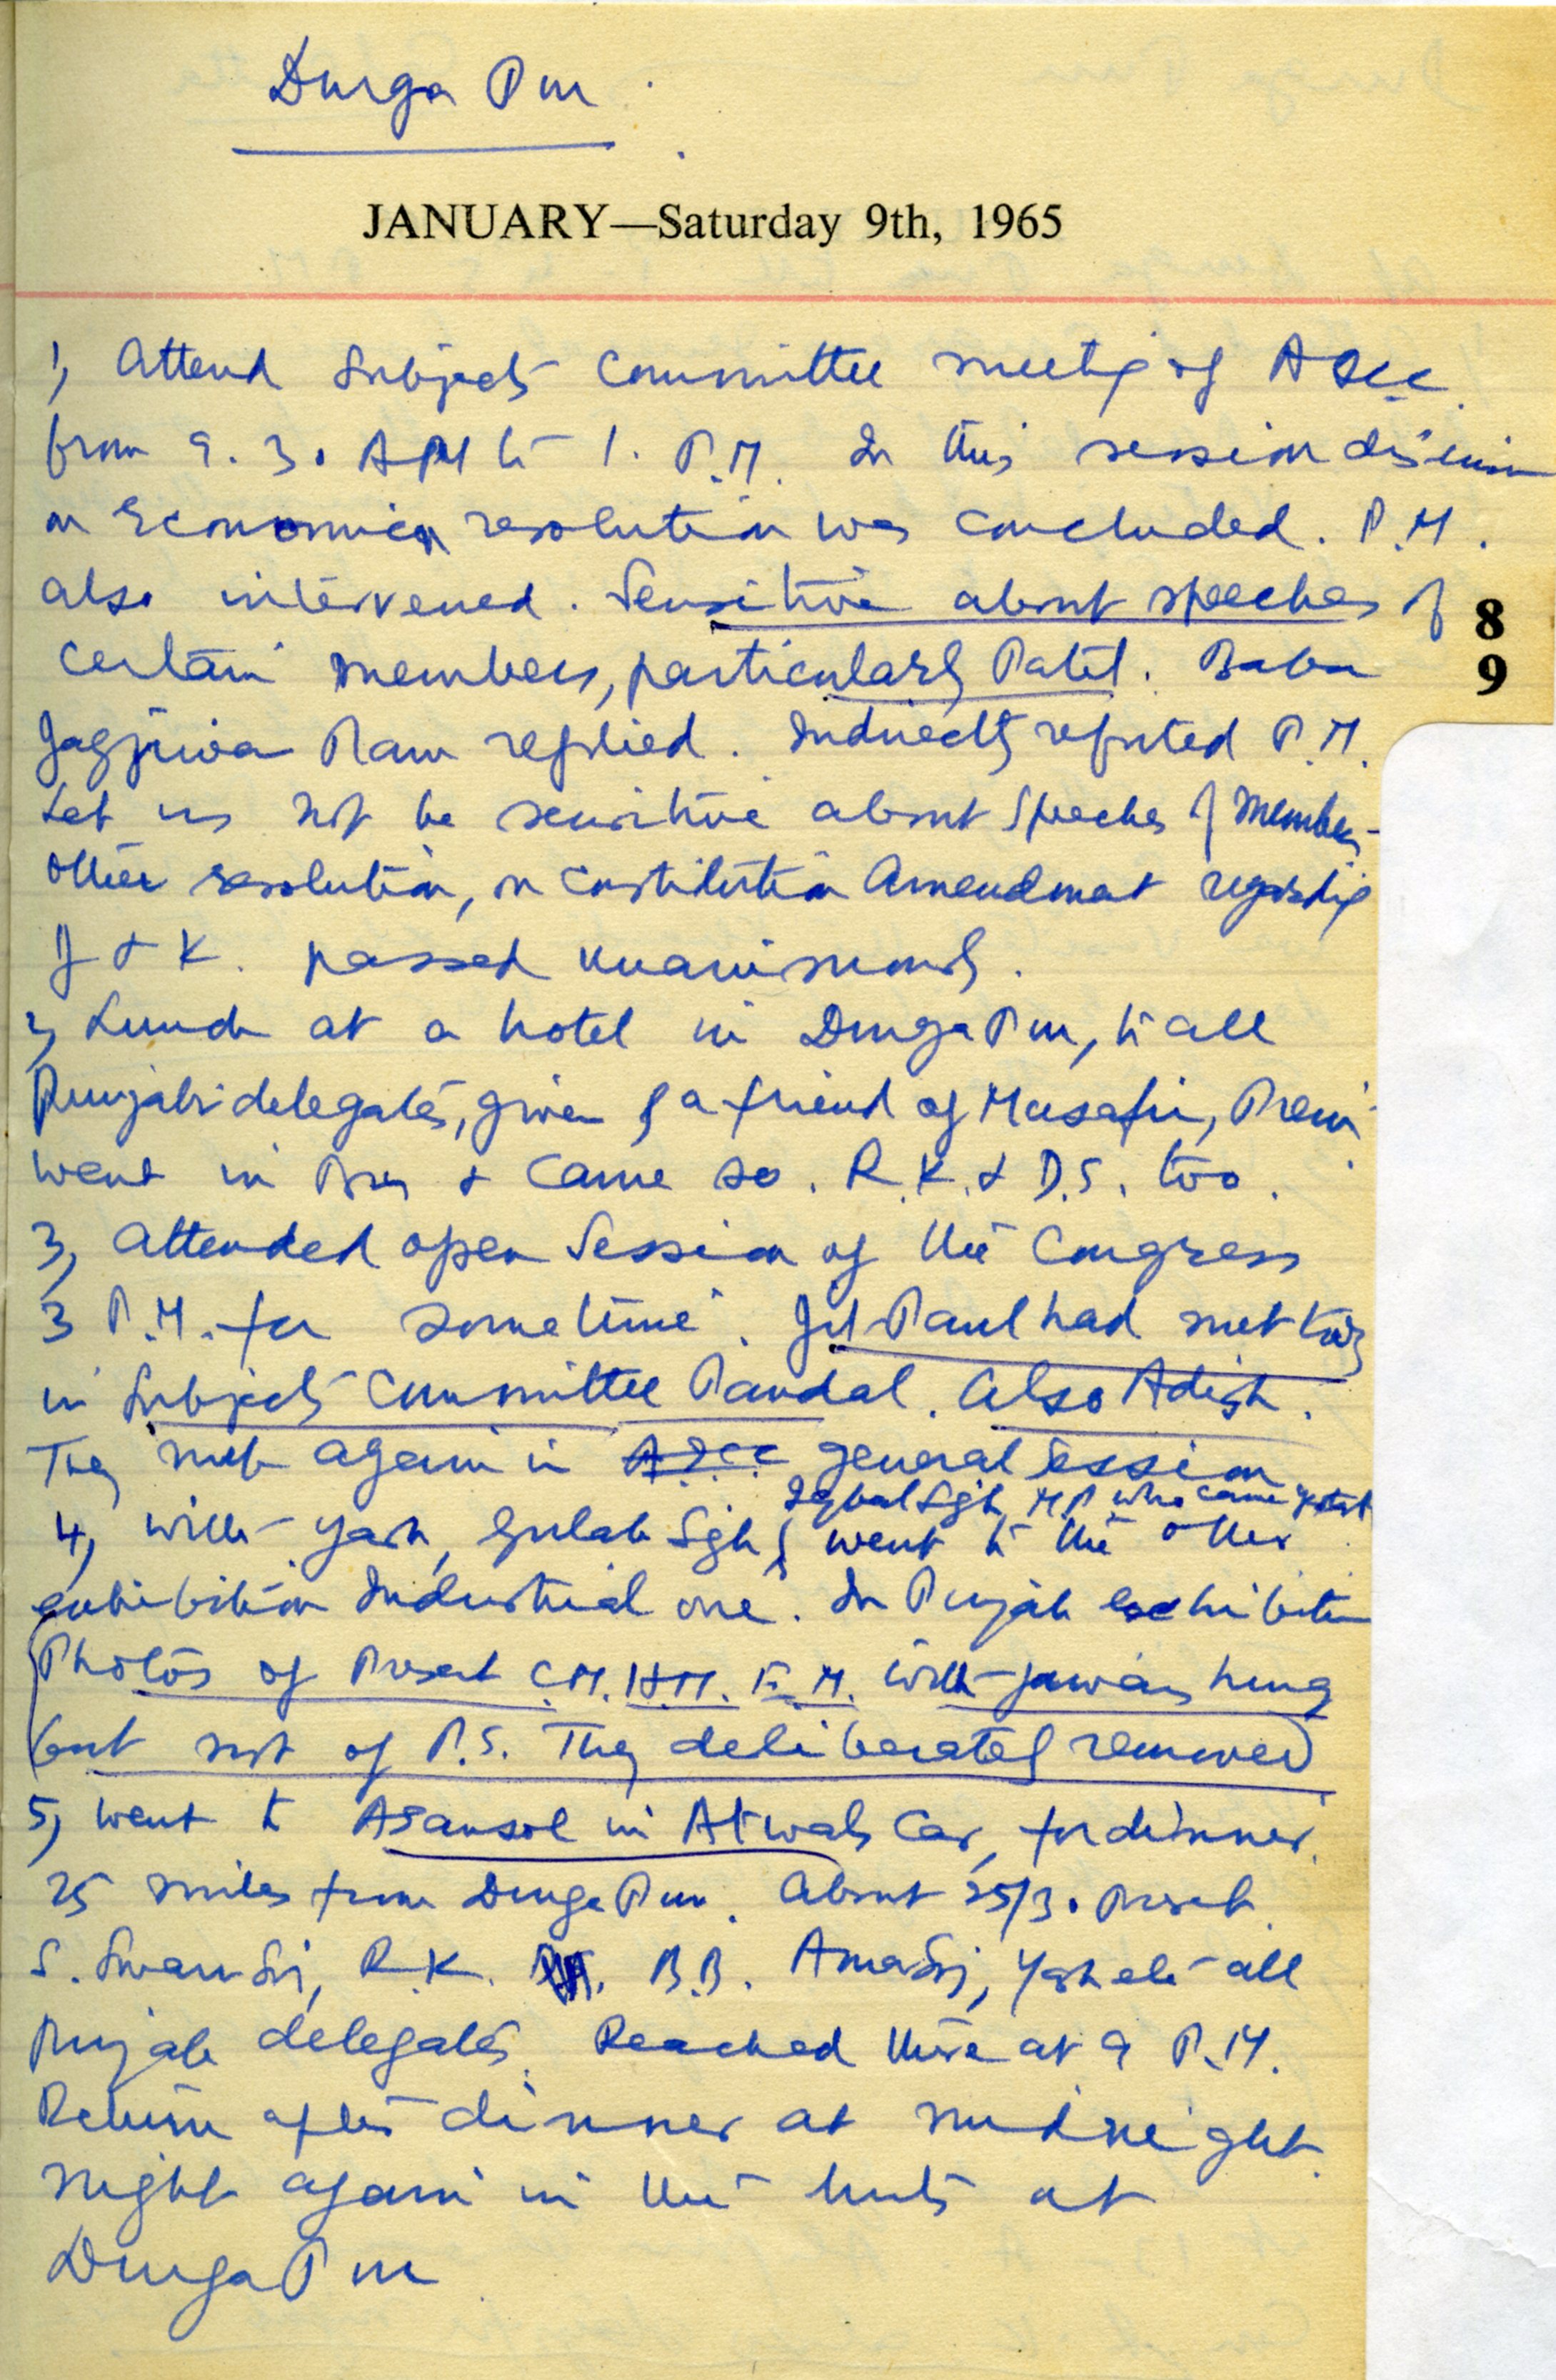 Durga Pur
JANUARY—Saturday 9th, 1965
1, Attend Subjects Committee meeting of AICC
from 9.30 AM to 1. P.M. In this session discussion
on Economic resolution was concluded. P.M.
also intervened. Sensitive about speeches of
8
certain members, particularly Patil. Babu
9
Jagjiwan Ram replied. Indirectly refuted P.M.
Let us not be sensitive about speeches of members
other resolution, on Constitution Amendment regarding
J & K. passed unanimously.
2, Lunch at a hotel in Durga Pur, to all
Punjabi delegates, given by a friend of Musafir, Prem
went in Bus & came so. R.K. & D.S. too.
3, Attended open Session of the Congress
3 P.M. for sometime. Jit Paul had met
in Subjects Committee Pandal. Also Adish.
They met again in AICC general session
Iqbal Sgh, MP who came
4, With Yash, Gulab Sgh & went to the other
exhibition Industrial one. In Punjab exhibition
Photos of Present C.M. H.M. F.M. with Jawans hung
but not of P.S. They deliberately removed
5, Went to Asansol in Atwals Car, for dinner.
25 miles from Durga Pur. About 25/30 present.
S. Swarn Sij, R.K. B.B. Amar Sij, Yash etc all
Punjab delegates. Reached there at 9 P.M.
Return after dinner at midnight.
Night again in the huts at
Durga Pur